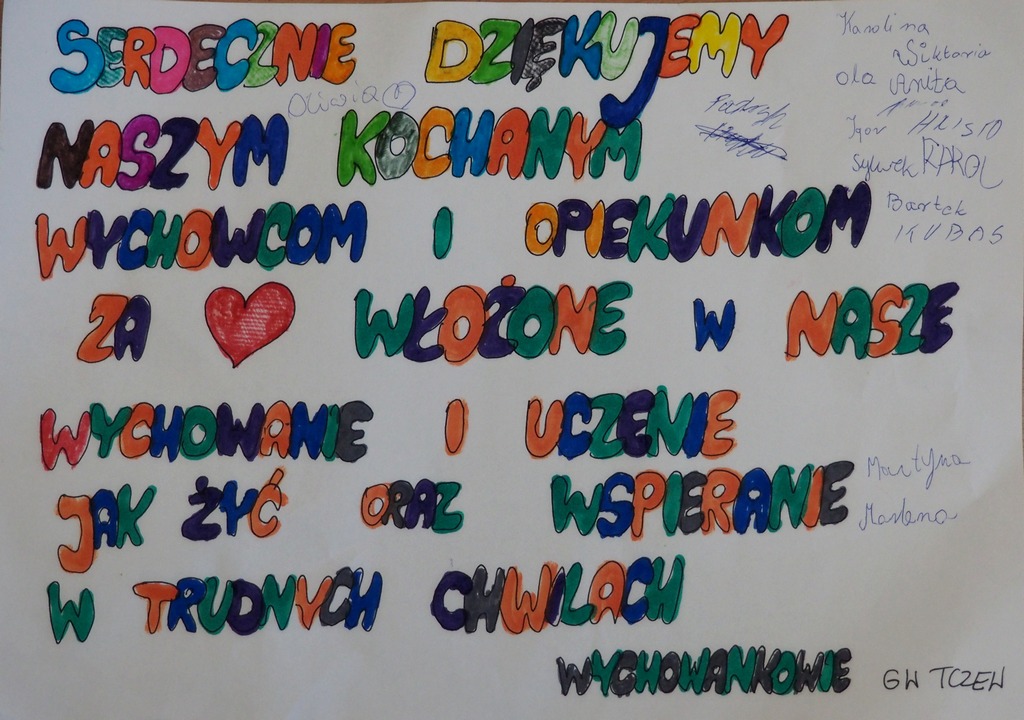 SERDECZNIE DZIĘKUJEMY
NASZYM KOCHANYM
WYCHOWCOM I OPIEKUNKOM
ZA ❤ WŁOŻONE W NASZE
WYCHOWANIE I UCZENIE
JAK ŻYĆ ORAZ WSPIERANIE
W TRUDNYCH CHWILACH
WYCHOWANKOWIE
GW TCZEW
Oliwia ♡
Karolina
Wiktoria
Ola Anita
Patryk
Igor
Sylwek KAROL
Bartek
KUBAS
Martyna
Marlena